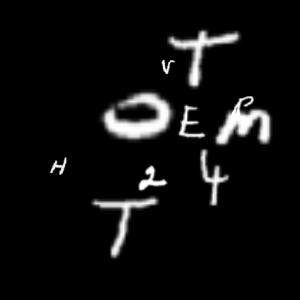 T
V
P
O E M
H 2 4
T